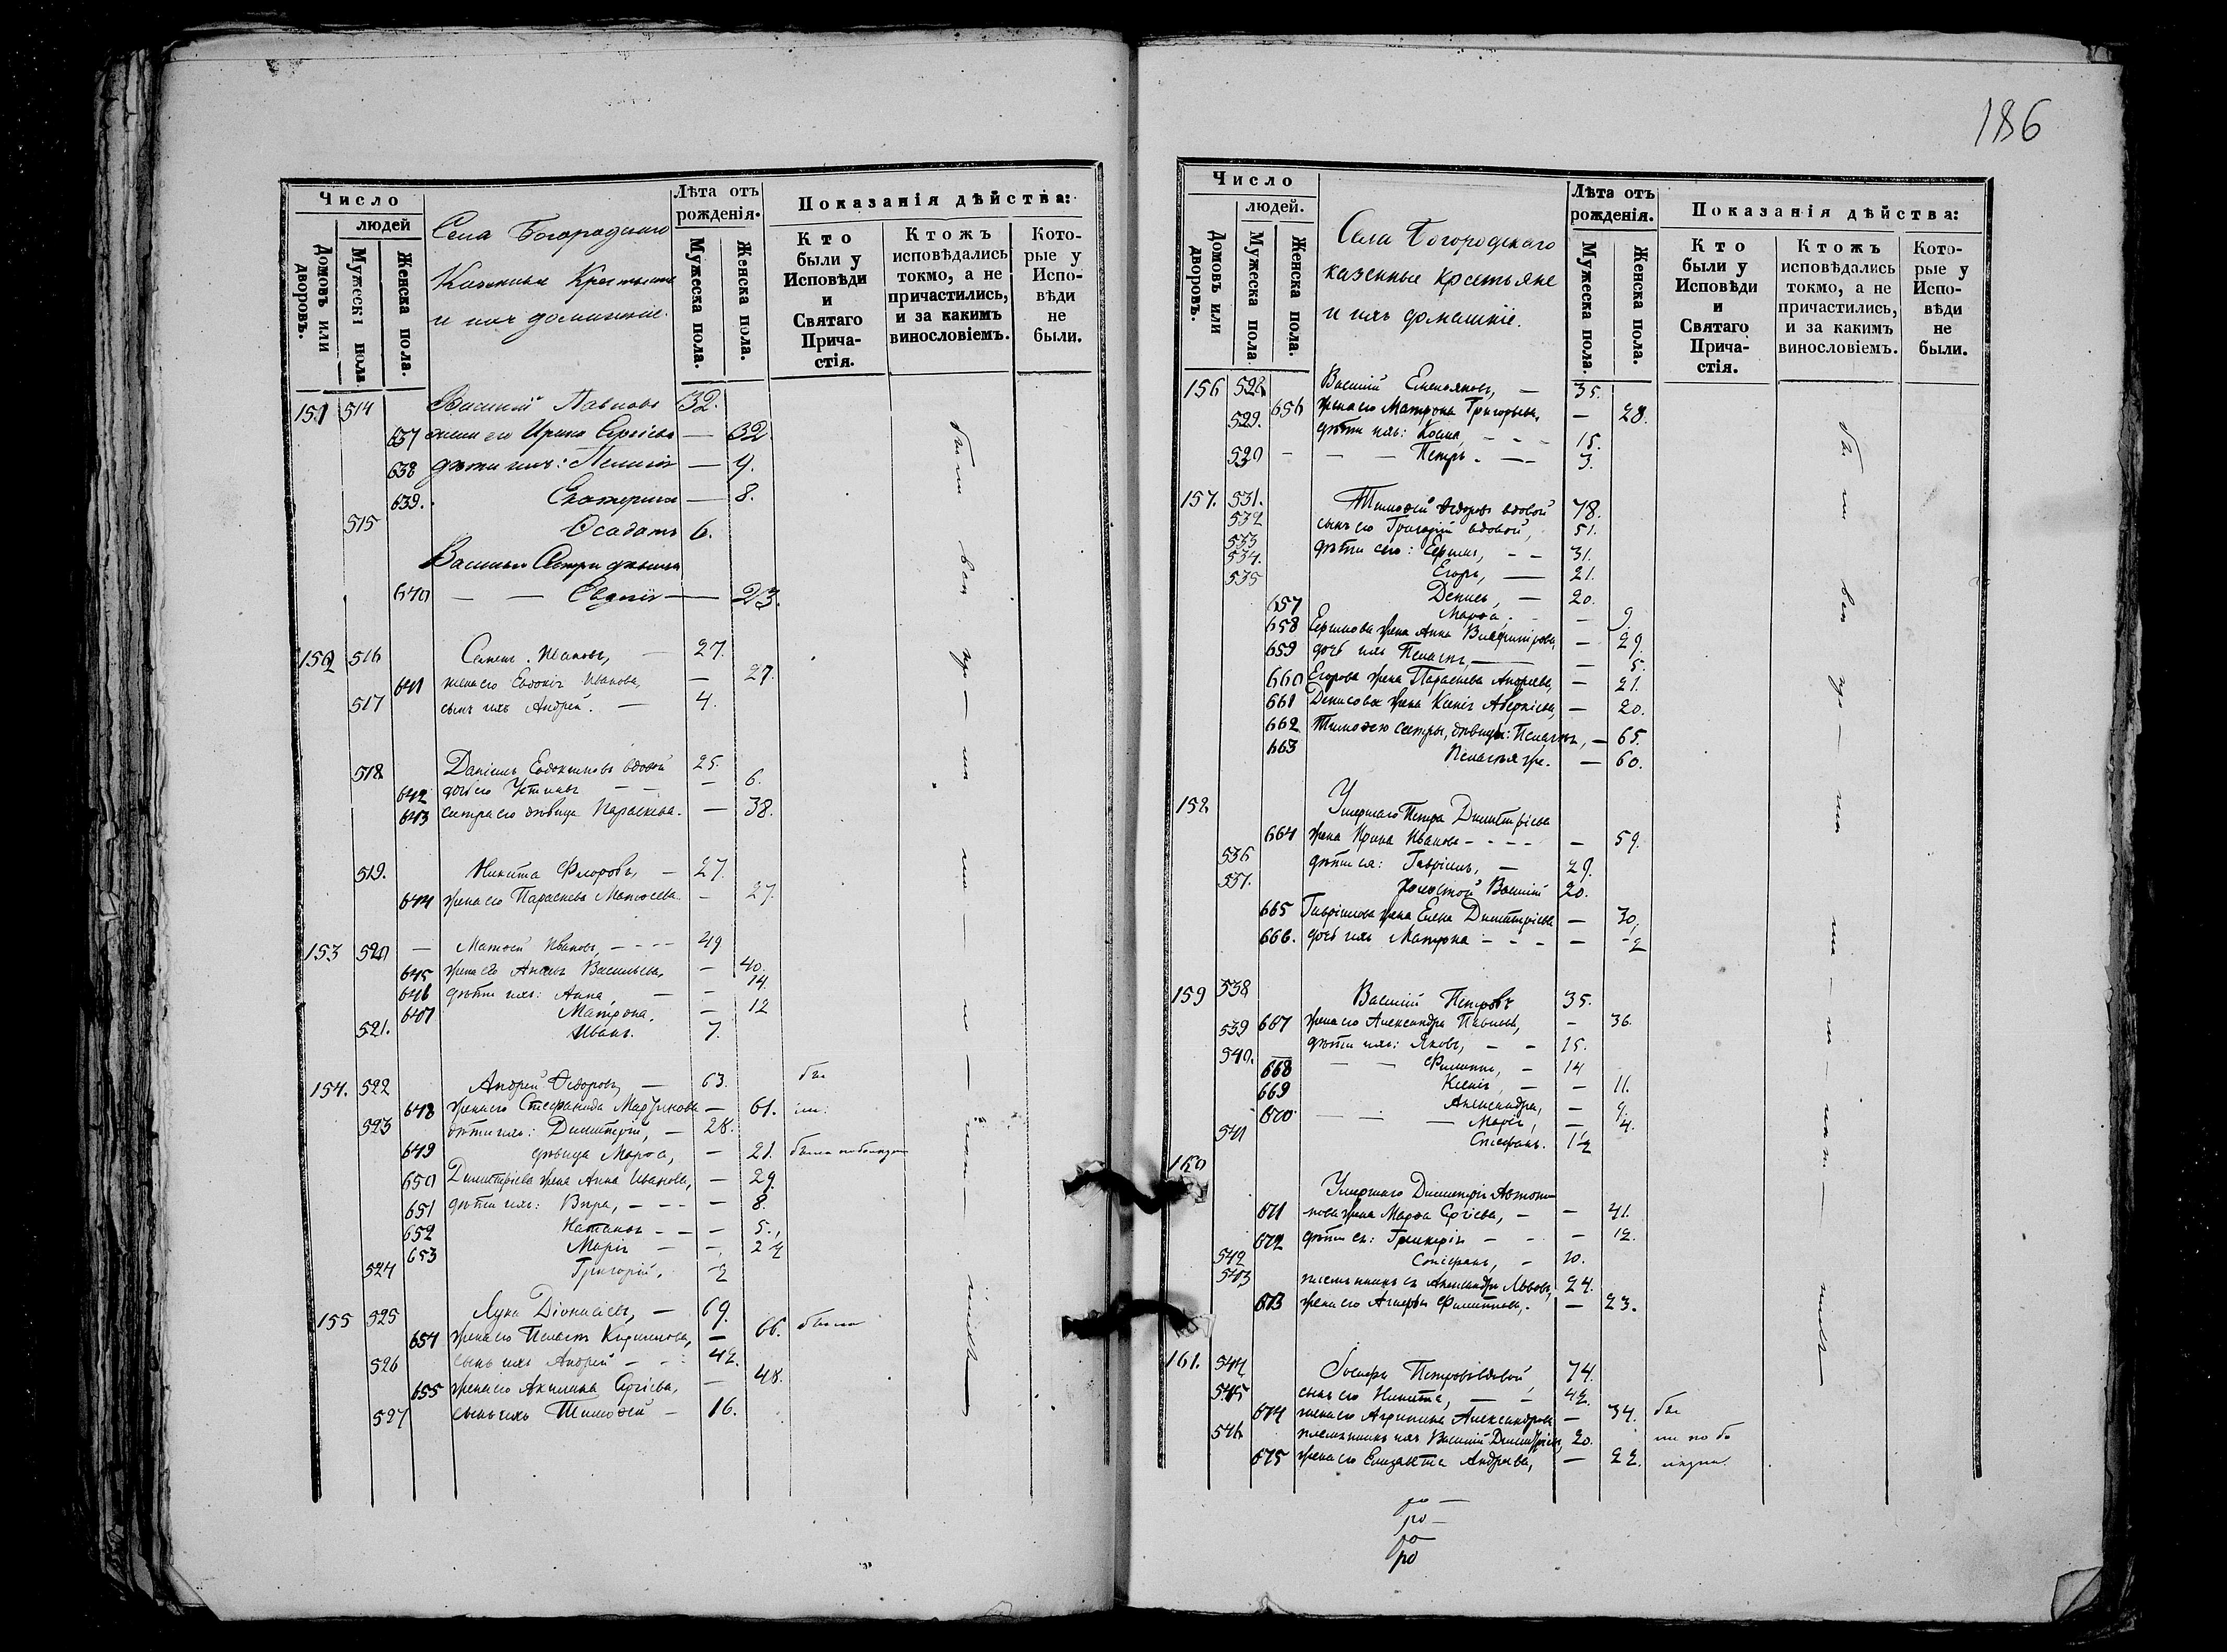 186
Число
людей
Домовъ или дворовъ.
Мужеска пола
Женска пола.
Села Богородскаго
Казенные Крестьяне
и ихъ домашніе.
Лѣта отъ рожденія.
Мужеска пола.
Женска пола.
Показанія дѣйства:
Кто были у Исповѣди и Святаго Прича-стія.
Ктожъ исповѣдались токмо, а не причастились, и за какимъ винословіемъ.
Кото-рые у Испо-вѣди не были.
151 514 Василій Павловъ 32.
637 жена его Ирина Сергіева — 32
638 дѣти ихъ: Пелагія — 9.
639. Екатерина — 8.
515 6.
Василья Сестра дѣвица
640 — — Евдокія — 23.
152 516 Семенъ Ивановъ, — 27.
641 жена его Евдокія Иванова, — 27.
517 сынъ ихъ Андрей. — 4.
518 Даніилъ Евдокимовъ вдовой 25.
642 дочь его Устинья — 6.
643 сестра его дѣвица Параскева. — 38.
519. Никита Флоровъ, — 27.
644 жена его Параскева Матѳеева — 27.
153 520 — Матѳей Ивановъ, - - - 49
645 жена его Васильева, — 40.
646 дѣти ихъ: Анна, — 14.
647 Матрона. — 12
521. Иванъ. 7.
154. 522 Андрей Ѳедоровъ, — 63. бы
648 жена его Стефанида — 61. ли:
523 дѣти ихъ: Димитрій, — 28.
649 дѣвица Марѳа, — 21.
650 Димитріева жена Анна Иванова, — 29.
651 дѣти ихъ: Вѣра, - - - — 8.
652 Наталья - - — 5.,
653 Марія — —
524 Григорій.
155 525 Лука Діонисіевъ, — 69.
654 жена его Пелагія Кириллова, — 66. были
526 сынъ ихъ Андрей - - 42.
655 жена его Акилина Сергіева, — 48.
527 сынъ ихъ Тимоѳей — 16.
Число
людей.
Домовъ или дворовъ.
Мужеска пола
Женска пола.
Села Богородскаго
казенные крестьяне
и ихъ домашніе.
Лѣта отъ рожденія.
Мужеска пола.
Женска пола.
Показанія дѣйства:
Кто были у Исповѣди и Святаго Прича-стія.
Ктожъ исповѣдались токмо, а не причастились, и за какимъ винословіемъ.
Кото-рые у Испо-вѣди не были.
156 528 Василій Емельяновъ, — 35.
656 жена его Матрона Григорьева, — 28.
529. дѣти ихъ: Косма, - - - 15.
530 - — — Петръ. - — 3.
157. 531. Тимоѳей Ѳедоровъ вдовой 78.
532 сынъ его Григорій вдовой, 51.
533 дѣти его: Ермилъ, - - 31.
534. Егоръ, — 21.
535 Денисъ, — 20.
657 Марѳа, - — 9.
658 Ермилова жена Анна Владимірова, — 29.
659 дочь ихъ Пелагія, — — 5.
660 Егорова жена Параскева Андреева, — 21.
661 Денисова жена Ксенія Аверкіева, — 20.
662 Тимоѳею сестры, дѣвицы: Пелагія, — 65.
663 Пелагія же. — 60.
158 Умершаго Петра Димитріева
664 жена Ирина Иванова - - - - — 59.
536 дѣти ея: Гавріилъ, — 29.
537. холостой Василій 20.
665 Гавріилова жена Елена Димитріева — 30,
666. дочь ихъ Матрона - - - —
159 538 Василій Петровъ 35.
667 жена его Александра Павлова, — 36.
539 дѣти ихъ: Яковъ, - - 15.
540. — — Филиппъ, - 14
668 Ксенія, — — 11.
669 Александра, — 9.
670 — — — Марія, — 4.
541 Стефанъ.
160
Умершаго Димитрія
671 жена Марѳа Сергіева, - — 41.
672 дѣти ея: Гликерія - - — 12.
542 Стефанъ, - 10.
543 племянникъ ея Александръ Львовъ, 24.
673 жена его Филиппова, - — 23.
161. 544 Іосифъ Петровъ вдовой, 74.
545 сынъ его Никита, — 42.
674 жена его Агрипина Александрова — 34. бы
546 племянникъ ихъ Василій Димитріевъ, 20. ли по бо
675 жена его Елизавета Андреева, — 22.